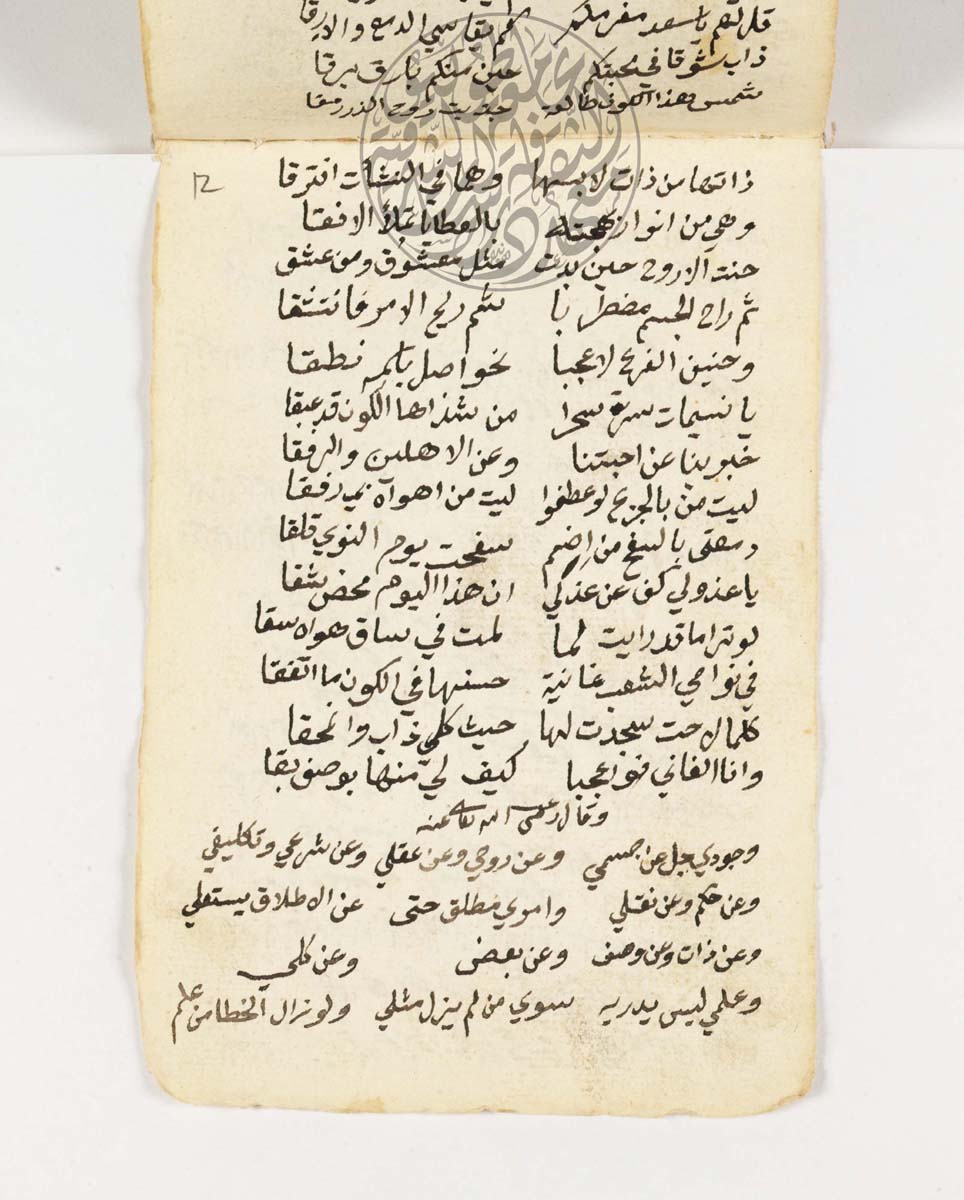 قل لهم يا سعد مغرمكم كم يقاسي الدمع والارقا
ذاب شوقا في محبتكم حين منكم بارق برقا
شمس هذا الكون طالعة
ذاتها من ذات لابسها وهما في النشأت افترقا
وهي من انوار بهجته بالعطايا تملأ الافقا
حنت الاروح حين بدت مثل معشوق ومن عشق
ثم راح الجسم مضطربا شم ريح الامر فانتشقا
وحنين الفرع لا عجبا نحو اصل باسمه نطقا
يا نسيمات سرت سحرا من شذاها الكون قد عبقا
خبرينا عن احبتنا وعن الاهلين والرفقا
ليت من بالجزع لو عطفوا ليت من اهواه بي رفقا
دمعتي بالسفح من اضم سفحت يوم النوي قلقا
يا عذولي كف عن عذلي ان هذا اليوم محض شقا
لو ترا ما قد رايت لما لمت في ساق هواه سقا
في نواحي الشعب غانية حسنها في الكون ما اتفقا
كلما لاحت سجدت لها حيث كلي ذاب وانمحقا
وانا الفاني فوا عجبا كيف لي منها بوصف بقا
وقال رضى الله تعا عنه
وجودي جل عن جسمي وعن روحي وعن عقلي وعن شرعي وتكليفي
وعن حكم وعن نقلي وامري مطلق حتى عن الاطلاق يستعلي
وعن ذات وعن وصف وعن بعض وعن كلي
وعلمي ليس يدريه سوي من لم يزل مثلي ولو زال الخطا من علم
١٢